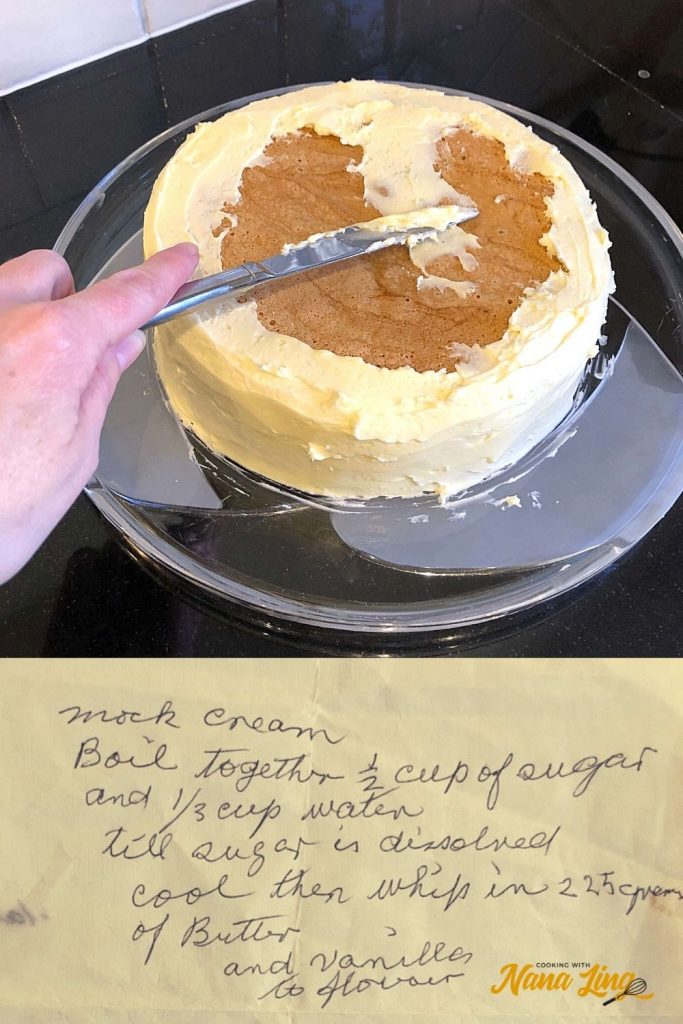 mock cream
Boil together 1/2 cup of sugar
and 1/3 cup water
till sugar is dissolved
cool then whip in 225 grams
of Butter
and vanilla
to flavour
COOKING WITH
Nana Ling